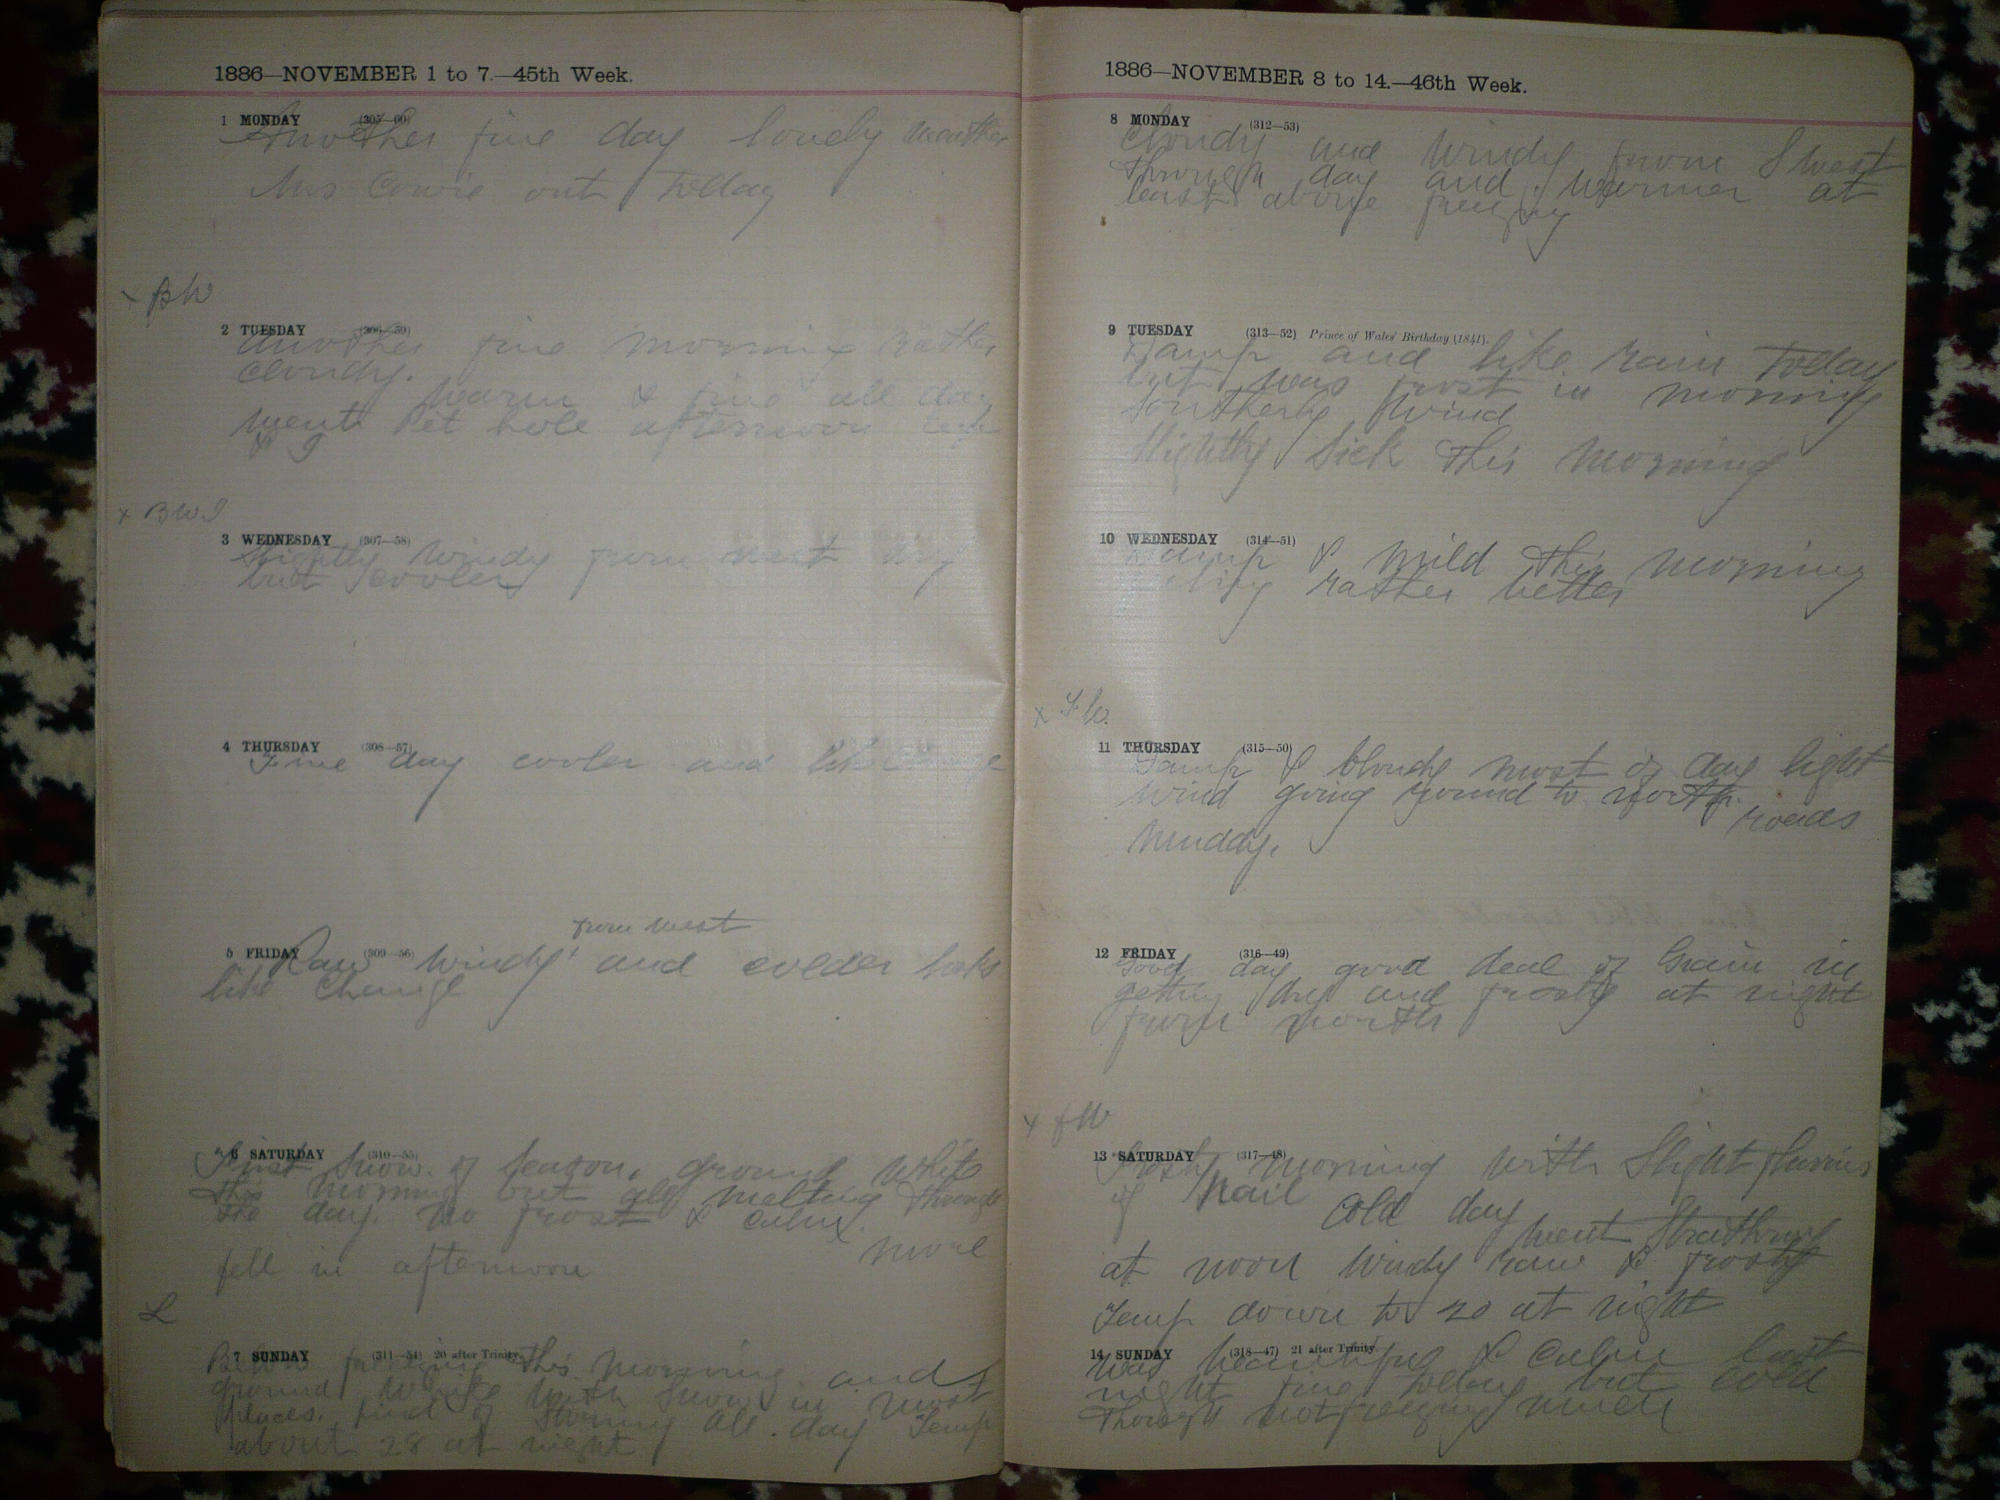 1886—NOVEMBER 1 to 7.—45th Week.
1 MONDAY (305—60)
Another fine day lovely weather
Mrs Cowie out today
x BW
2 TUESDAY (306—59)
Another fine morning rather
cloudy.
warm & fine all day
went Pet hole afternoon
x BW
3 WEDNESDAY (307—58)
Slightly windy from west
but cooler
4 THURSDAY (308—57)
Fine day cooler and like change
5 FRIDAY (309—56)
from west
Raw windy and colder looks
like change
6 SATURDAY (310—55)
First snow of season, ground white
this morning but all melting through
the day. no frost & calm.
more
fell in afternoon
L
7 SUNDAY (311—54) 20 after Trinity.
Below freezing this morning and
ground white with snow in most
places. kind of storming all day Temp
about 28 at night
1886—NOVEMBER 8 to 14.—46th Week.
8 MONDAY (312—53)
Cloudy and windy from S west
through day and warmer at
least above freezing
9 TUESDAY (313—52) Prince of Wales' Birthday (1841).
Damp and like rain today
but was frost in morning
southerly wind
slightly sick this morning
10 WEDNESDAY (314—51)
Damp & mild this morning
rather better
x FW.
11 THURSDAY (315—50)
Damp & cloudy most of day light
wind going round to north.
roads
muddy.
12 FRIDAY (316—49)
Good day good deal of Grain in
getting dry and frosty at night
from north
x FW
13 SATURDAY (317—48)
Frosty morning with slight flurries
of hail
cold day
went Strathroy
at noon windy raw & frosty
Temp down to 20 at night
14 SUNDAY (318—47) 21 after Trinity.
Was beautiful & calm last
night fine today but cold
though not freezing much